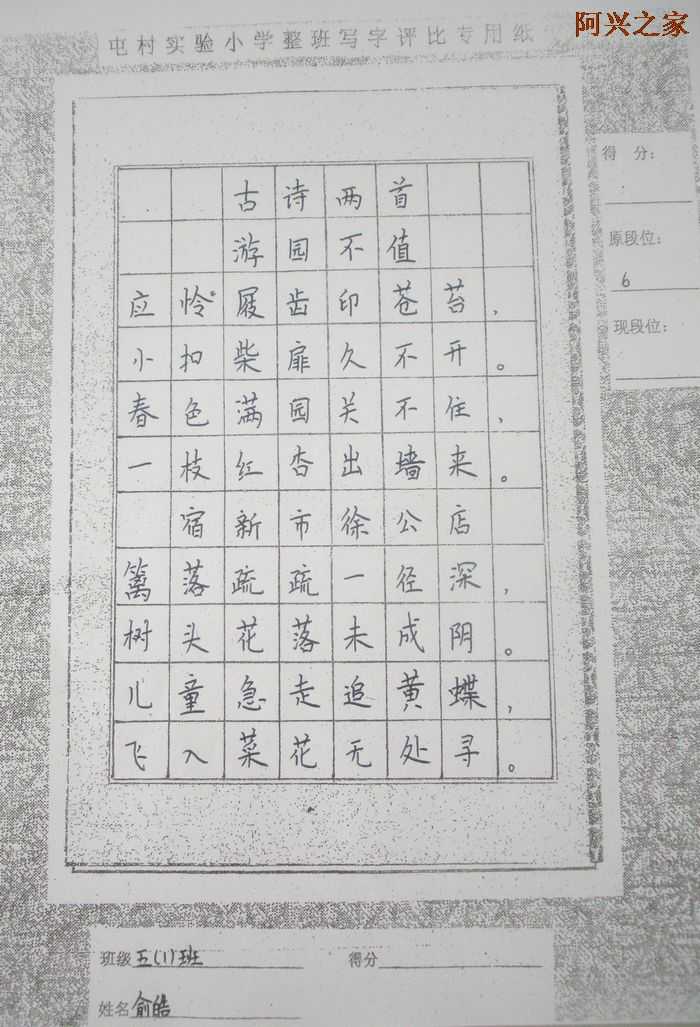 阿兴之家
屯村实验小学整班写字评比专用纸
得 分：
原段位：
6
现段位：
古诗两首
游园不值
应怜屐齿印苍苔，
小扣柴扉久不开。
春色满园关不住，
一枝红杏出墙来。
宿新市徐公店
篱落疏疏一径深，
树头花落未成阴。
儿童急走追黄蝶，
飞入菜花无处寻。
班级 五(1)班 得分
姓名 俞皓